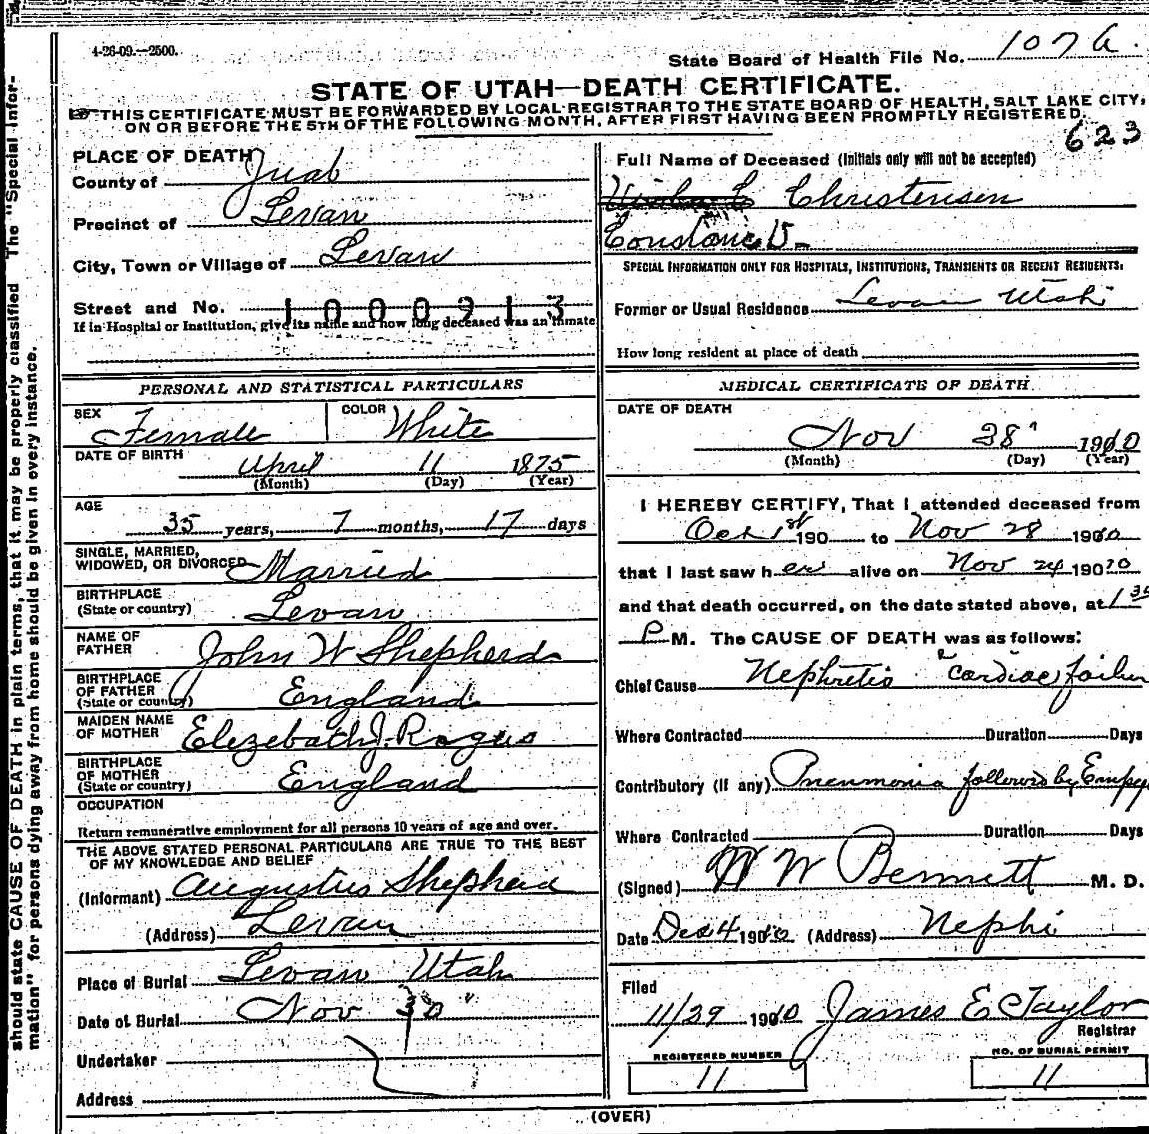 4-26-09.—2500.
State Board of Health File No. 107 a.
STATE OF UTAH—DEATH CERTIFICATE.
THIS CERTIFICATE MUST BE FORWARDED BY LOCAL REGISTRAR TO THE STATE BOARD OF HEALTH, SALT LAKE CITY,
ON OR BEFORE THE 5TH OF THE FOLLOWING MONTH, AFTER FIRST HAVING BEEN PROMPTLY REGISTERED.
623
PLACE OF DEATH
County of Juab
Precinct of Levan
City, Town or Village of Levan
Street and No. 1000213
If in Hospital or Institution, give its name and how long deceased was an inmate
Full Name of Deceased (Initials only will not be accepted)
Christensen
Constance V
SPECIAL INFORMATION ONLY FOR HOSPITALS, INSTITUTIONS, TRANSIENTS OR RECENT RESIDENTS.
Former or Usual Residence Levan Utah
How long resident at place of death
PERSONAL AND STATISTICAL PARTICULARS
SEX Female
COLOR White
DATE OF BIRTH
April 11 1875
(Month) (Day) (Year)
AGE
35 years, 7 months, 17 days
SINGLE, MARRIED,
WIDOWED, OR DIVORCED Married
BIRTHPLACE
(State or country) Levan
NAME OF
FATHER John W Shepherd
BIRTHPLACE
OF FATHER
(State or country) England
MAIDEN NAME
OF MOTHER Elezebath J. Rogers
BIRTHPLACE
OF MOTHER
(State or country) England
OCCUPATION
Return remunerative employment for all persons 10 years of age and over.
THE ABOVE STATED PERSONAL PARTICULARS ARE TRUE TO THE BEST
OF MY KNOWLEDGE AND BELIEF
(Informant) Augustus Shepherd
(Address) Levan
Place of Burial Levan Utah
Date of Burial Nov 30"
Undertaker
Address
MEDICAL CERTIFICATE OF DEATH.
DATE OF DEATH
Nov 28" 1910
(Month) (Day) (Year)
I HEREBY CERTIFY, That I attended deceased from
Oct 1st 190 to Nov 28 1910
that I last saw her alive on Nov 24 19010
and that death occurred, on the date stated above, at 1 30
P M. The CAUSE OF DEATH was as follows:
Chief Cause Nephretis & cardiac failur
Where Contracted Duration Days
Contributory (if any) Pneumonia followed by Empy
Where Contracted Duration Days
(Signed) W W Bennett M. D.
Date Dec 4 1910 (Address) Nephi
Filed
11/29 1910 James E Taylor
Registrar
REGISTERED NUMBER
11
NO. OF BURIAL PERMIT
11
(OVER)
should state CAUSE OF DEATH in plain terms, that it may be properly classified The "Special Infor-
mation" for persons dying away from home should be given in every instance.